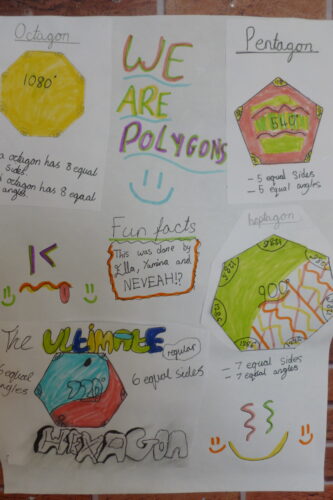 Octagon
1080°
a octagon has 8 equal
sides
octagon has 8 equal
angles
WE
ARE
POLYGONS
Pentagon
540°
– 5 equal sides
– 5 equal angles
K
Fun facts
This was done by
Ella, Yumina and
NEVEAH!?
heptagon
900°
– 7 equal sides
– 7 equal angles
The ULTIMATE
regular
6 equal
angles
720°
6 equal sides
HEXAGON